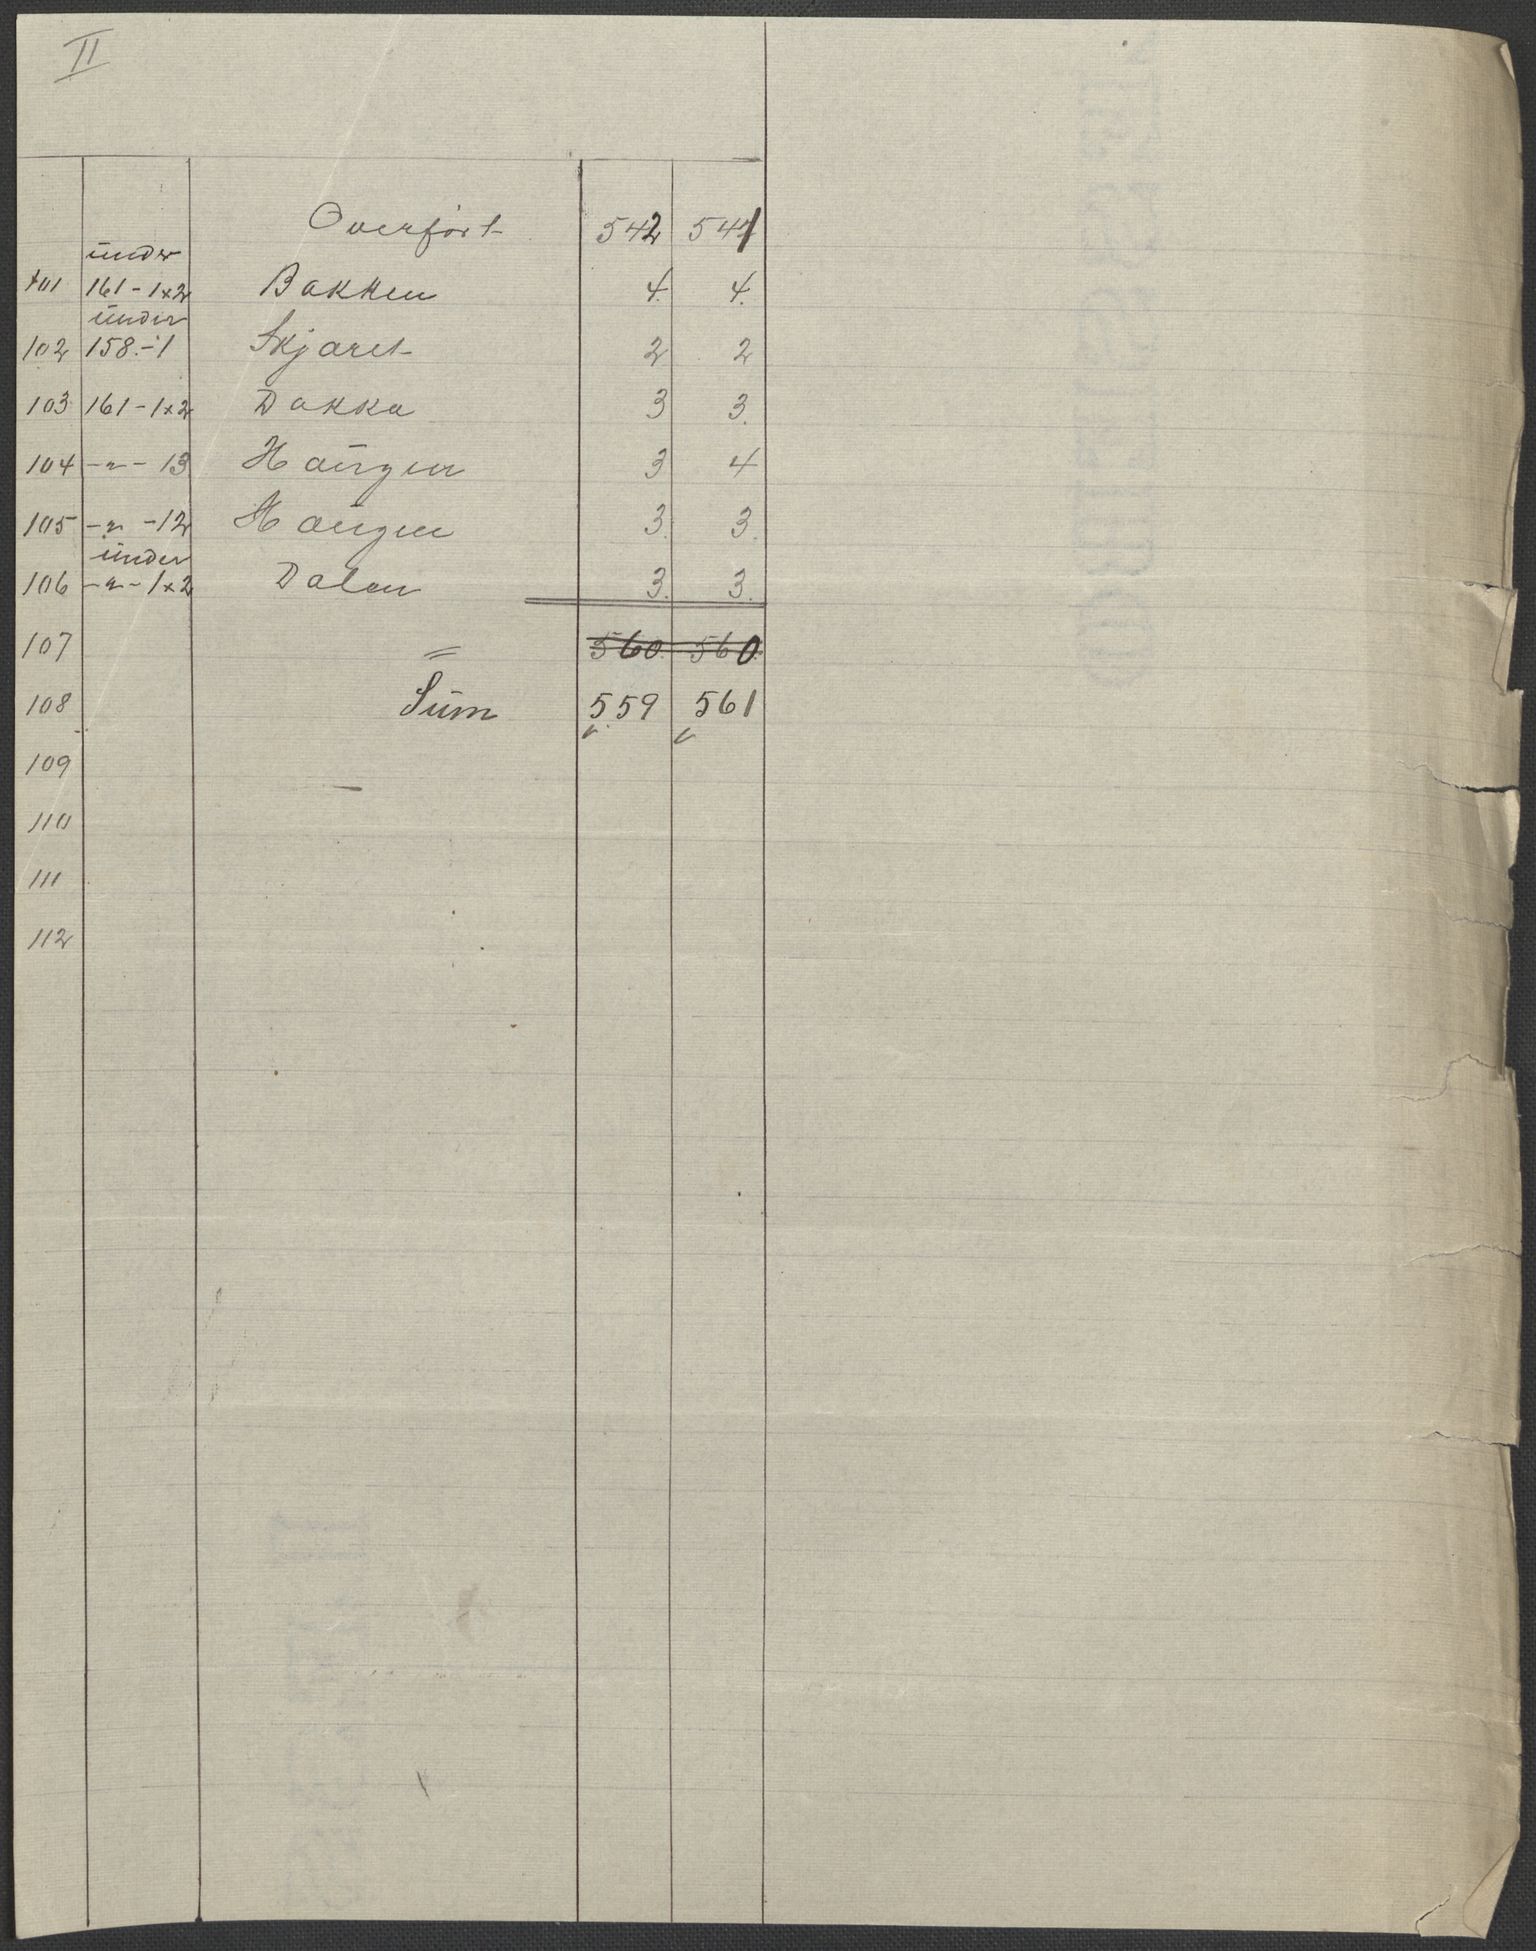 II
Overført 542 541
under
101 161-1x2 Bakken 4. 4.
under
102 158.-1 Skjaret 2 2
103 161-1x2 Dakka 3 3.
104 -"- 13 Haugen 3 4
105 -"- 12 Haugen 3. 3.
under
106 -"- 1x2 Dalen 3. 3.
107 = 560. 560.
108 Sum 559 561
109
110
111
112